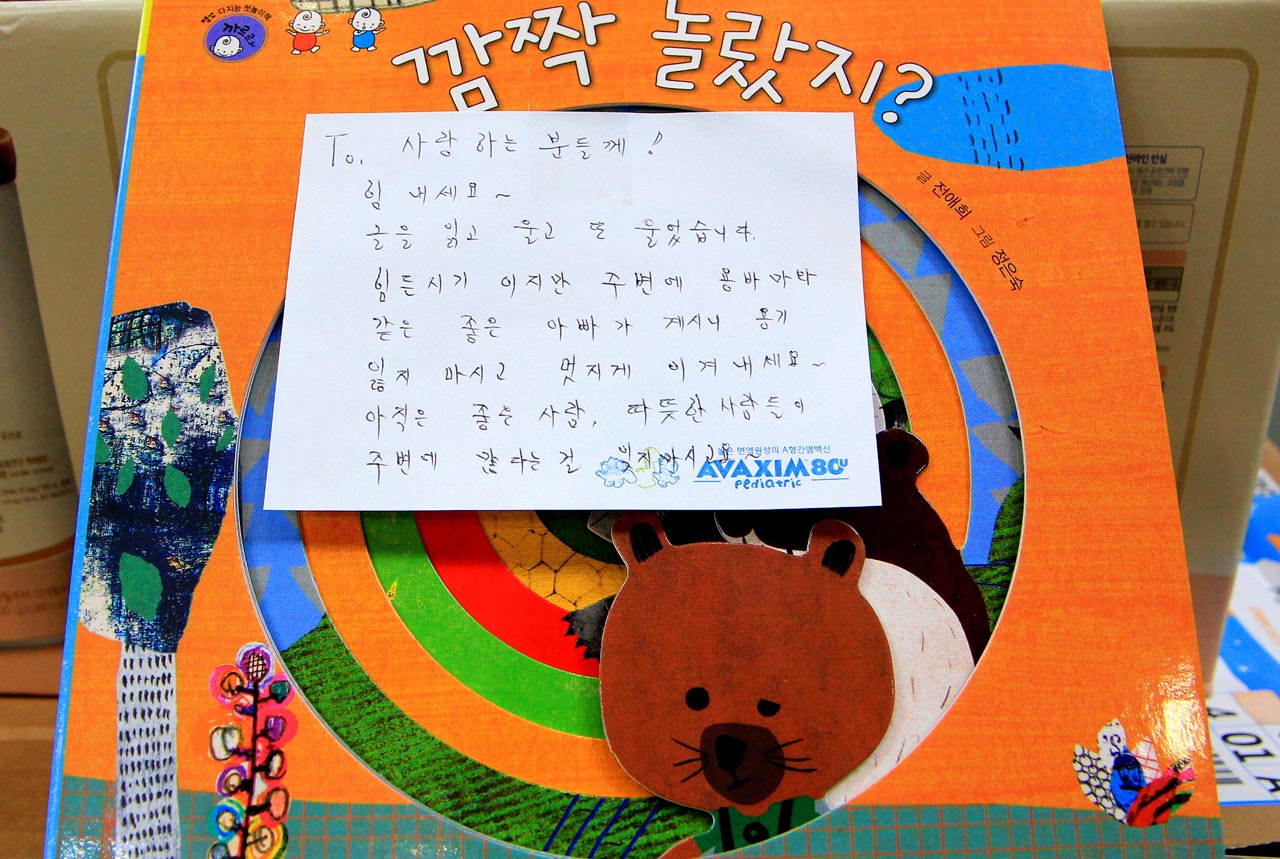 까르르
깜짝 놀랐지?
글 전애희 그림 정은숙
To. 사랑하는 분들께!
힘 내세요~
글을 읽고 울고 또 울었습니다.
힘든시기 이지만 주변에 용바마타
같은 좋은 아빠가 계시니 용기
잃지 마시고 멋지게 이겨내세요~
아직은 좋은 사람, 따뜻한 사람들이
주변에 많다는 걸 잊지마시고요~
높은 면역원성의 A형간염백신
AVAXIM 80U
pediatric
4 01 A